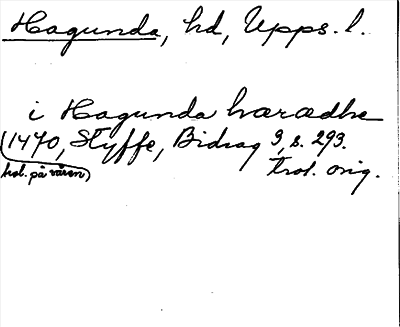 Hagunda, hd, Upps. l.
i Hagunda hæradhe
(1470, Styffe, Bidrag 3, s. 293.
trol. på våren) Trol. orig.